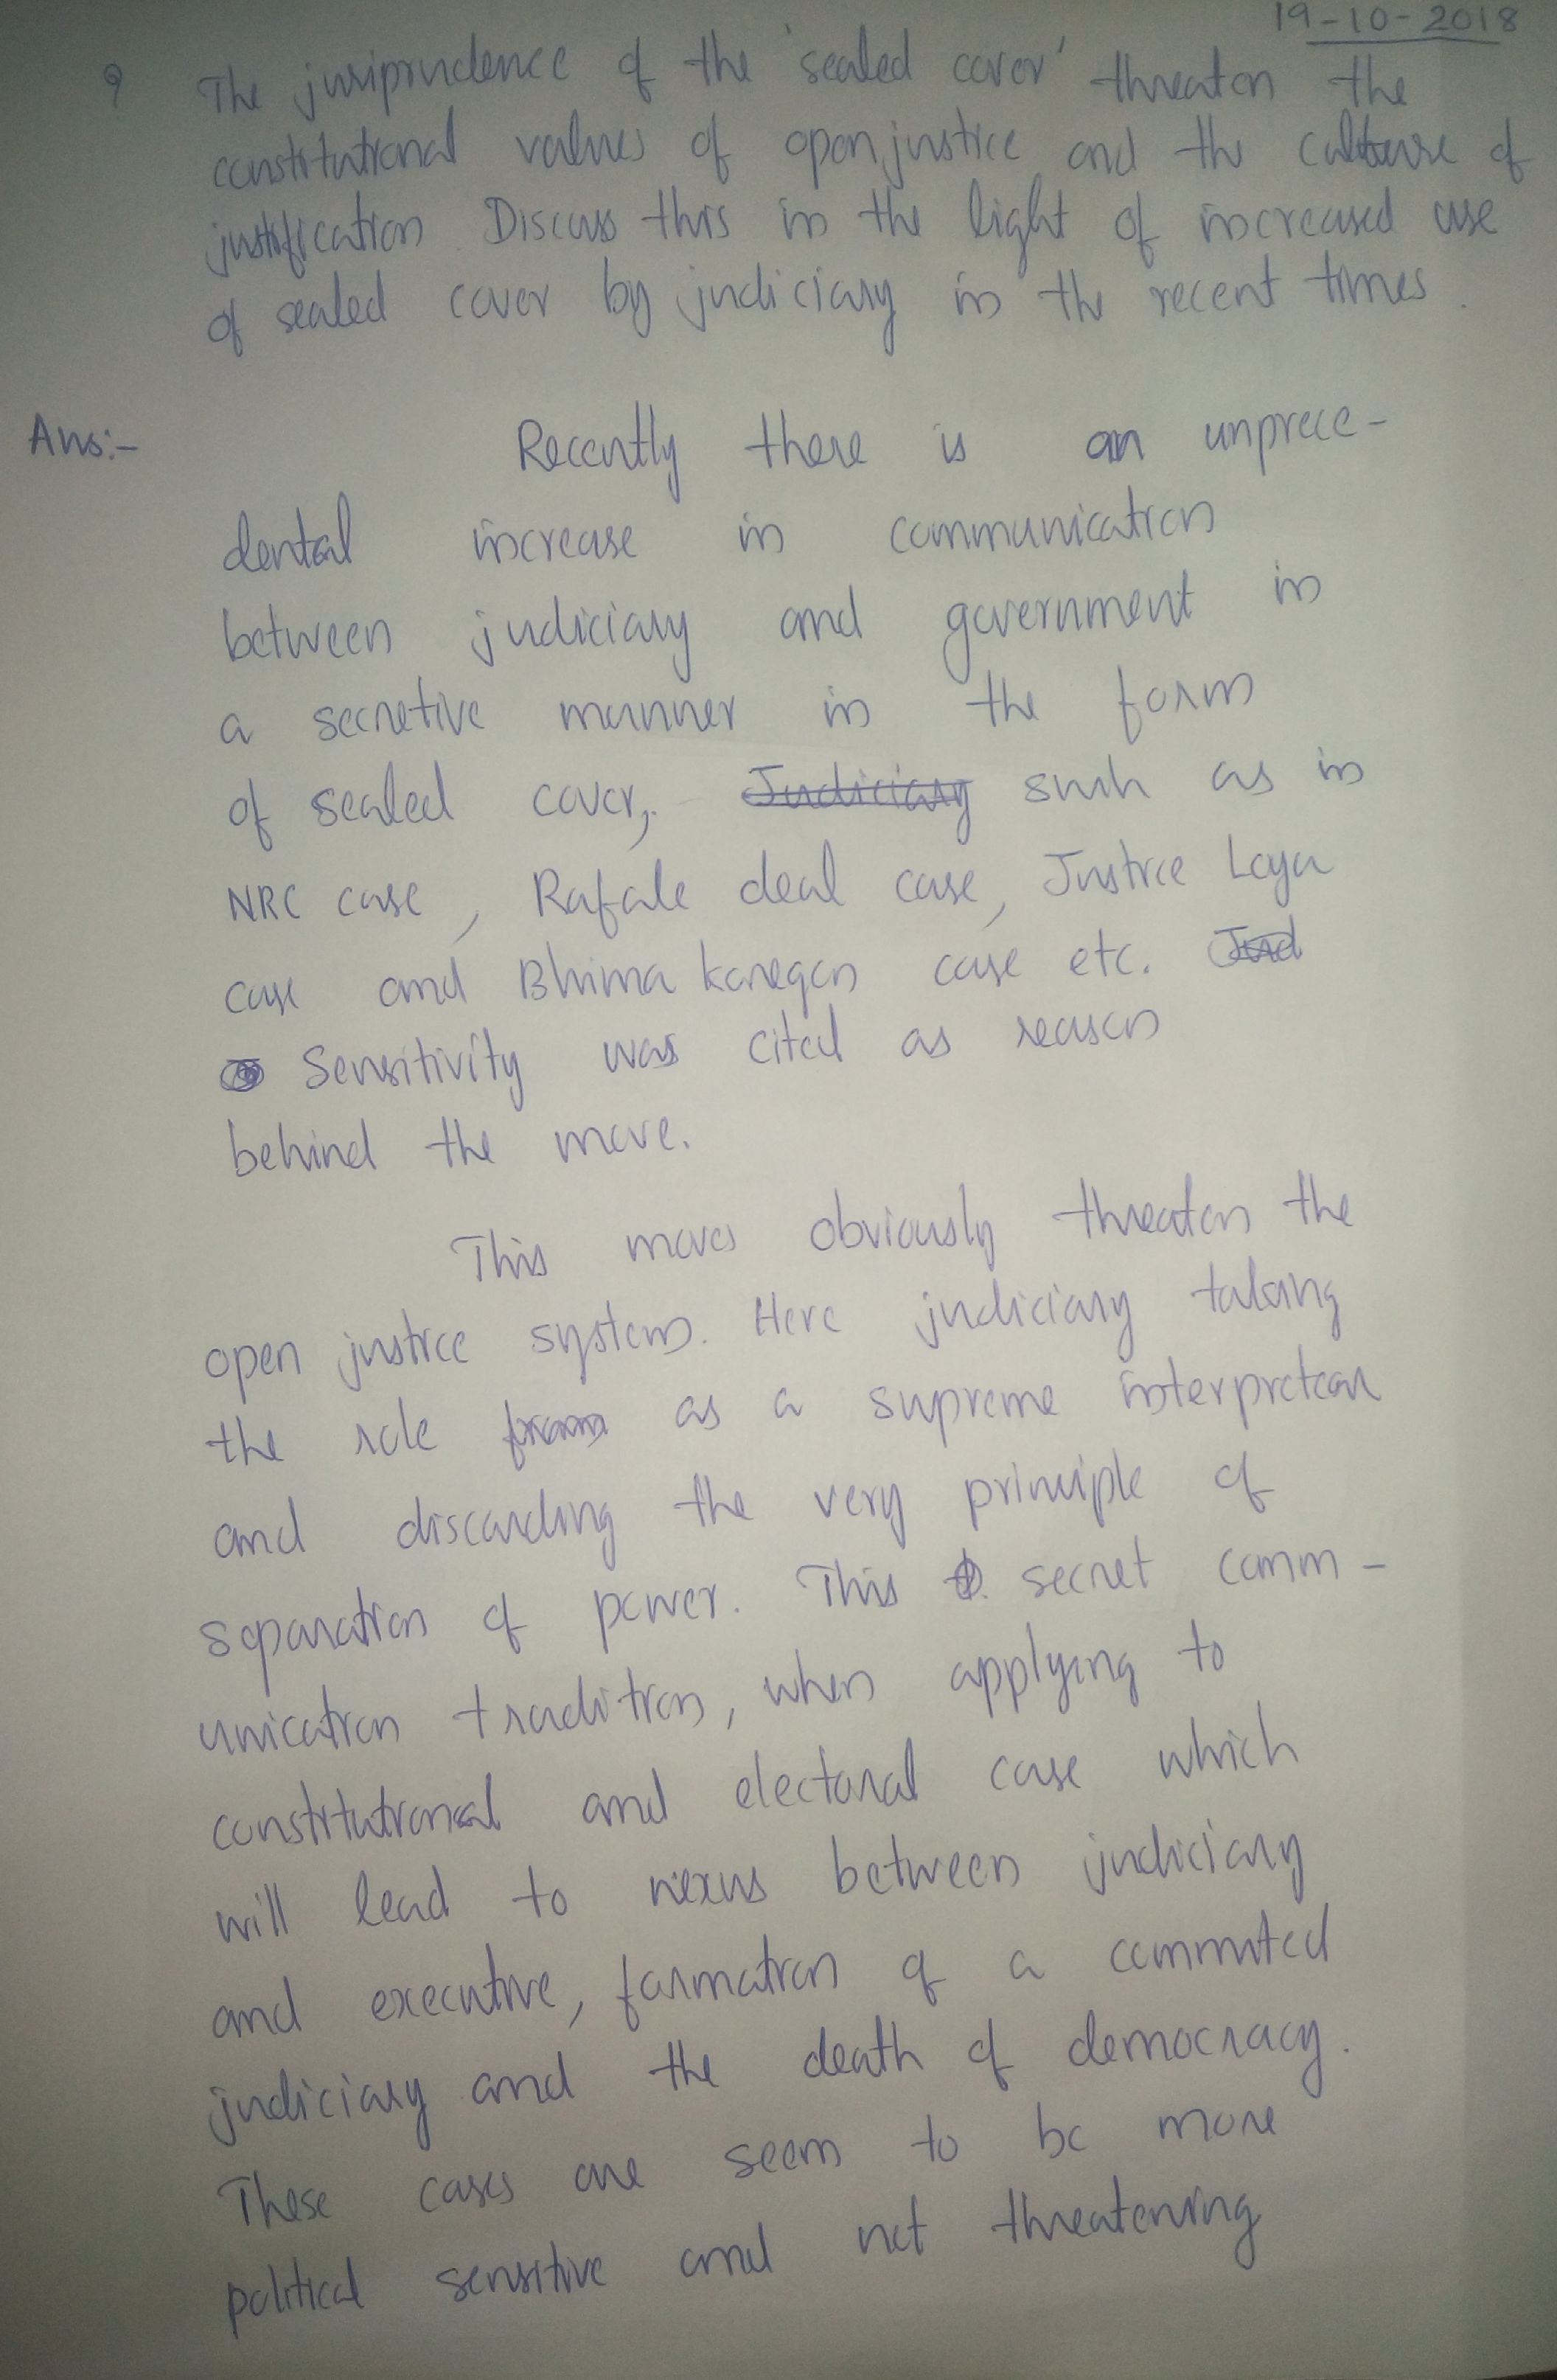 19-10-2018
Q The jurisprudence of the 'sealed cover' threaten the
constitutional values of open justice and the culture of
justification. Discuss this in the light of increased use
of sealed cover by judiciary in the recent times.
Ans:- Recently there is an unprece-
dental increase in communication
between judiciary and government in
a secretive manner in the form
of sealed cover, Judiciary such as in
NRC case, Rafale deal case, Justice Loya
case and Bhima koregon case etc. Jud
Sensitivity was cited as reason
behind the move.
This moves obviously threaten the
open justice system. Here judiciary taking
the role as a supreme interpretear
and discarding the very principle of
separation of power. This secret comm-
unication tradition, when applying to
constitutional and electoral case which
will lead to nexus between judiciary
and executive, formation of a committed
judiciary and the death of democracy.
These cases are seem to be more
political sensitive and not threatening